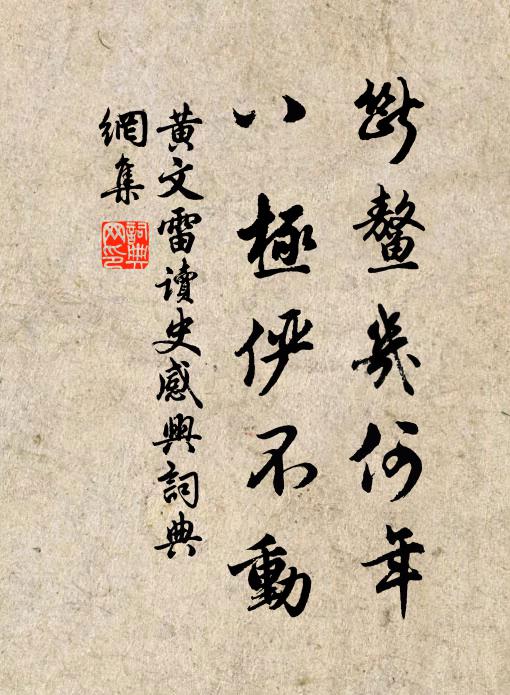 斷鼇幾何年
八極俨不動
黃文雷讀史感興詞典
網集
詞典网印